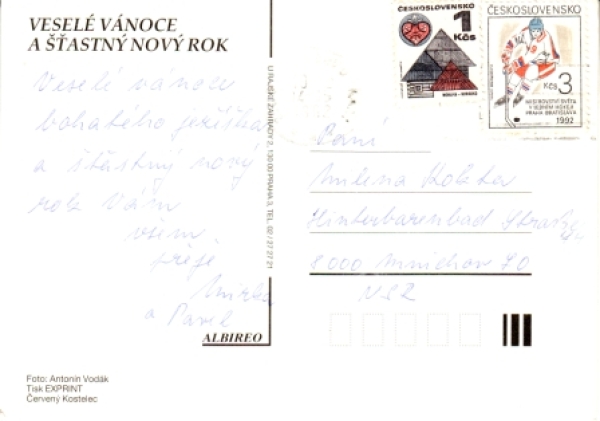 VESELÉ VÁNOCE
A ŠŤASTNÝ NOVÝ ROK
Veselé vánoce
bohatého ježíška
a šťastný nový
rok Vám
všem
přeje
Mirka
a Pavel
ALBIREO
Foto: Antonín Vodák
Tisk EXPRINT
Červený Kostelec
U RAJSKÉ ZAHRADY 2, 130 00 PRAHA 3, TEL. 02 / 27 27 21
ČESKOSLOVENSKO
1
Kčs
ČESKOSLOVENSKO
Kčs 3
MISTROVSTVÍ SVĚTA
V LEDNÍM HOKEJI
PRAHA BRATISLAVA
1992
Paní
Milena
Hinterbärenbad
8000 Mnichov 70
NSR